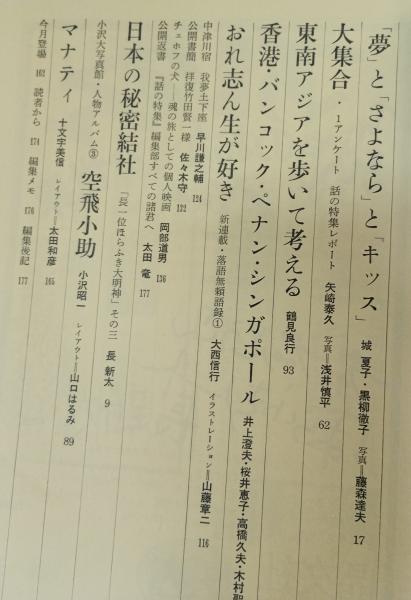 「夢」と「さよなら」と「キッス」 城 夏子・黒柳徹子 写真＝藤森達夫 17
大集合・1アンケート 話の特集レポート 矢崎泰久 写真＝浅井慎平 62
東南アジアを歩いて考える 鶴見良行 93
香港・バンコック・ペナン・シンガポール 井上澄夫・桜井恵子・高橋久夫・木村聖
おれ志ん生が好き 新連載・落語無頼語録① 大西信行 イラストレーション＝山藤章二 116
中津川宿 我夢土下座 早川謙之輔 124
公開書簡 拝復竹田賢一様 佐々木守 122
チェホフの犬 魂の旅としての個人映画 岡部道男 136
公開返書 『話の特集』編集部すべての諸君へ 太田 竜 177
日本の秘密結社 「長一位ほらふき大明神」その三 長 新太 9
小沢大写真館・人物アルバム③ 空飛小助 小沢昭一 レイアウト＝山口はるみ 89
マナティ 十文字美信 レイアウト＝太田和彦 165
今月登場 162 読者から 174 編集メモ 176 編集後記 177